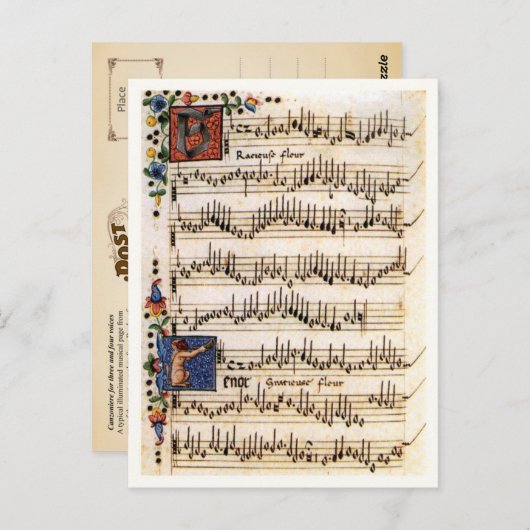 Racieuse fleur
enor Gracieuse fleur
Place
POST
Canzoniere for three and four voices
A typical illuminated musical page from
zzle